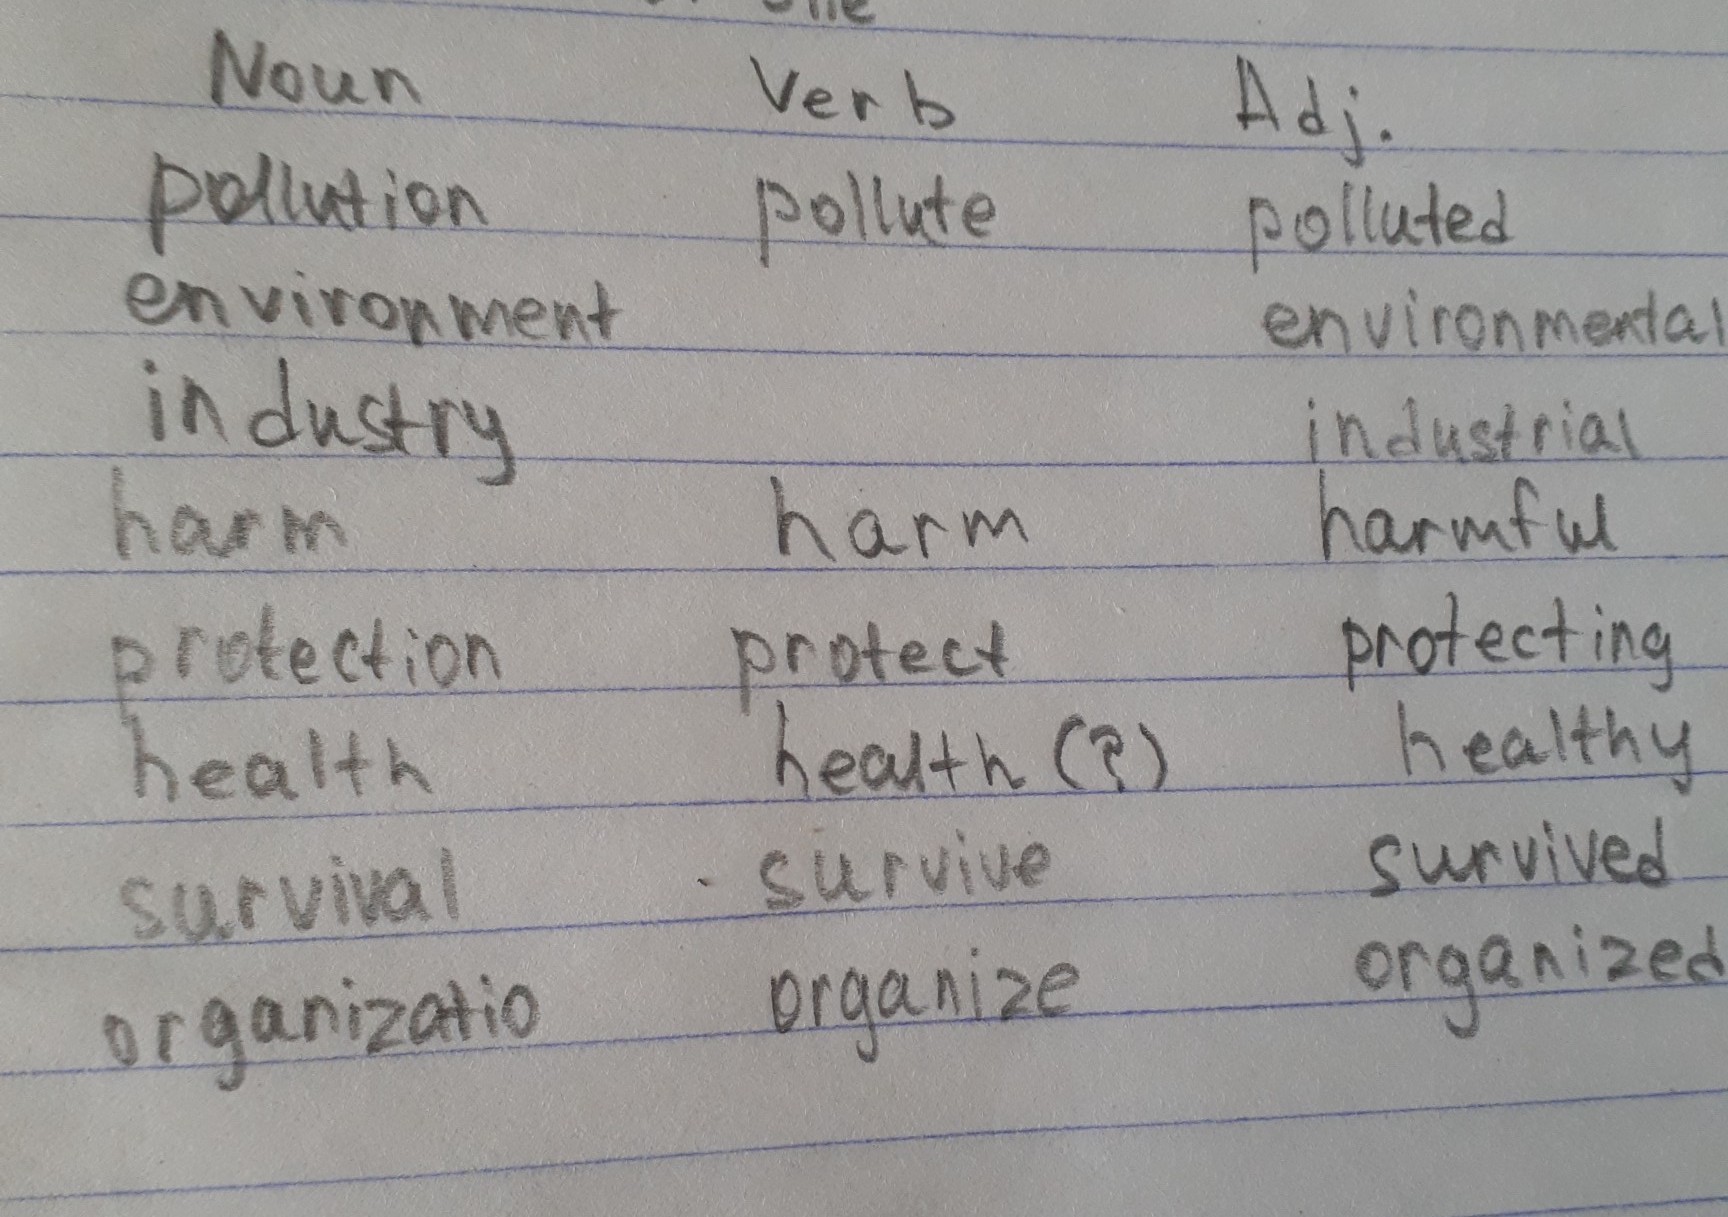 Noun Verb Adj.
pollution pollute polluted
environment environmental
industry industrial
harm harm harmful
protection protect protecting
health health (?) healthy
survival survive survived
organizatio organize organized